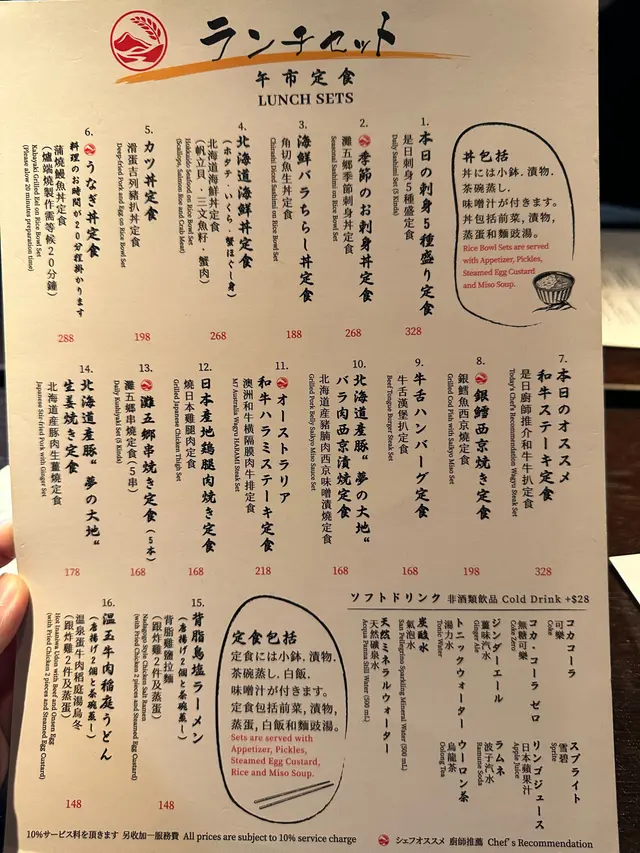 ランチセット
午市定食
LUNCH SETS
丼包括
丼には小鉢．漬物．
茶碗蒸し．
味噌汁が付きます。
丼包括前菜，漬物，
蒸蛋和麵豉湯。
Rice Bowl Sets are served
with Appetizer, Pickles,
Steamed Egg Custard
and Miso Soup.
1.
本日の刺身5種盛り定食
是日刺身5種盛定食
Daily Sashimi Set (5 Kinds)
328
2.
季節のお刺身丼定食
灘五鄉季節刺身丼定食
Seasonal Sashimi on Rice Bowl Set
268
3.
海鮮バラちらし丼定食
角切魚生丼定食
Chirashi Diced Sashimi on Rice Bowl Set
188
4.
北海道海鮮丼定食
(ホタテ．いくら．蟹ほぐし身)
北海道海鮮丼定食
(帆立貝．三文魚籽．蟹肉)
Hokkaido Seafood on Rice Bowl Set
(Scallops, Salmon Roe and Crab Meat)
268
5.
カツ丼定食
滑蛋吉列豬扒丼定食
Deep-fried Pork and Egg on Rice Bowl Set
198
6.
うなぎ丼定食
料理のお時間が20分程掛かります
蒲燒鰻魚丼定食
(爐端燒製作需等候20分鐘)
Kabayaki Grilled Eel on Rice Bowl Set
(Please allow 20 minutes preparation time)
288
7.
本日のオススメ
和牛ステーキ定食
是日廚師推介和牛牛扒定食
Today's Chef's Recommendation Wagyu Steak Set
328
8.
銀鱈西京焼き定食
銀鱈魚西京燒定食
Grilled Cod Fish with Saikyo Miso Set
198
9.
牛舌ハンバーグ定食
牛舌漢堡扒定食
Beef Tongue Burger Steak Set
168
10.
北海道産豚“夢の大地“
バラ肉西京漬焼定食
北海道産豬腩肉西京味噌漬燒定食
Grilled Pork Belly Saikyo Miso Sauce Set
168
11.
オーストラリア
和牛ハラミステーキ定食
澳洲和牛橫隔膜肉牛排定食
M7 Australia Wagyu HARAMI Steak Set
218
12.
日本産地鶏腿肉焼き定食
燒日本雞腿肉定食
Grilled Japanese Chicken Thigh Set
168
13.
灘五郷串焼き定食(5本)
灘五鄉串燒定食(5串)
Daily Kushiyaki Set (5 Kinds)
168
14.
北海道産豚“夢の大地“
生姜焼き定食
北海道産豚肉生薑燒定食
Japanese Stir-fried Pork with Ginger Set
178
15.
背脂鳥塩ラーメン
(唐揚げ2個と茶碗蒸し)
背脂雞鹽拉麵
(銀炸雞2件及蒸蛋)
Nadagogo Style Chicken Salt Ramen
(with Fried Chicken 2 pieces and Steamed Egg Custard)
148
16.
温玉牛肉稲庭うどん
(唐揚げ2個と茶碗蒸し)
溫泉蛋牛肉稻庭湯烏冬
(銀炸雞2件及蒸蛋)
Hot Inaniwa Udon with Beef and Onsen Egg
(with Fried Chicken 2 pieces and Steamed Egg Custard)
148
定食包括
定食には小鉢．漬物．
茶碗蒸し．白飯．
味噌汁が付きます。
定食包括前菜，漬物，
蒸蛋，白飯和麵豉湯。
Sets are served with
Appetizer, Pickles,
Steamed Egg Custard,
Rice and Miso Soup.
ソフトドリンク 非酒類飲品 Cold Drink +$28
コカコーラ
可樂
Coke
コカ・コーラ ゼロ
無糖可樂
Coke Zero
ジンダーエール
薑味汽水
Ginger Ale
トニックウォーター
湯力水
Tonic Water
炭酸水
氣泡水
San Pellegrino Sparkling Mineral Water (500 mL)
天然ミネラルウォーター
天然礦泉水
Acqua Panna Still Water (500 mL)
スプライト
雪碧
Sprite
リンゴジュース
日本蘋果汁
Apple Juice
ラムネ
波子汽水
Ramune Soda
ウーロン茶
烏龍茶
Oolong Tea
10%サービス料を頂きます 另收加一服務費 All prices are subject to 10% service charge
シェフオススメ 廚師推薦 Chef's Recommendation